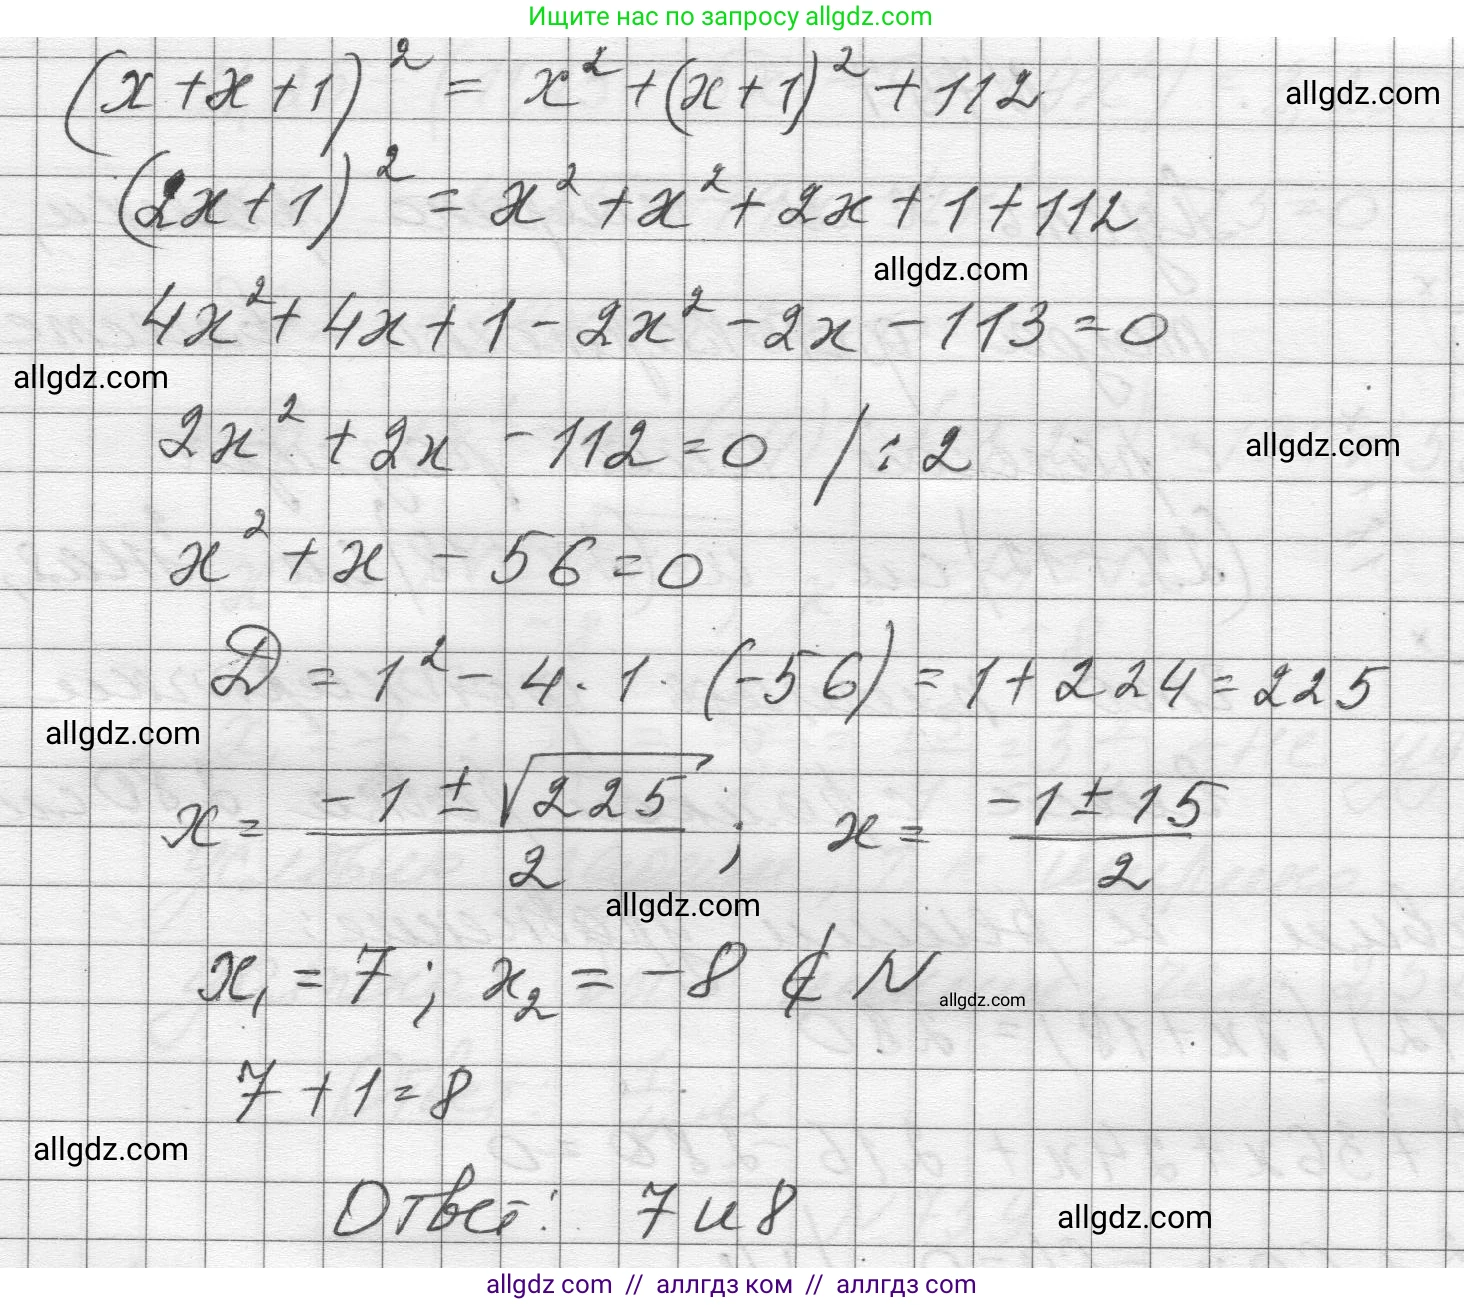 Ищите нас по запросу allgdz.com
(x + x + 1)² = x² + (x + 1)² + 112
allgdz.com
(2x + 1)² = x² + x² + 2x + 1 + 112
allgdz.com
4x² + 4x + 1 - 2x² - 2x - 113 = 0
allgdz.com
2x² + 2x - 112 = 0 / : 2
allgdz.com
x² + x - 56 = 0
D = 1² - 4 · 1 · (-56) = 1 + 224 = 225
allgdz.com
x = (-1 ± √225)/2 ; x = (-1 ± 15)/2
allgdz.com
x₁ = 7 ; x₂ = -8 ∉ N
allgdz.com
7 + 1 = 8
allgdz.com
Ответ: 7 и 8
allgdz.com
allgdz com // аллгдз ком // allgdz com